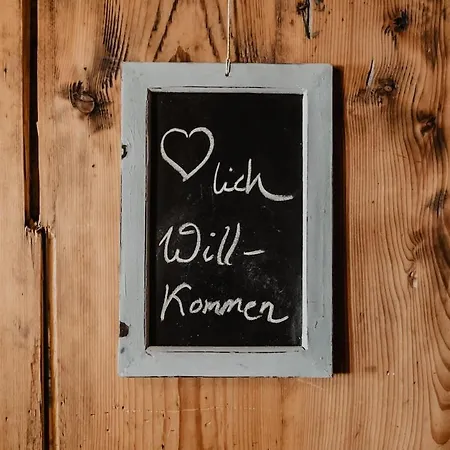 ♡lich
Will-
Kommen